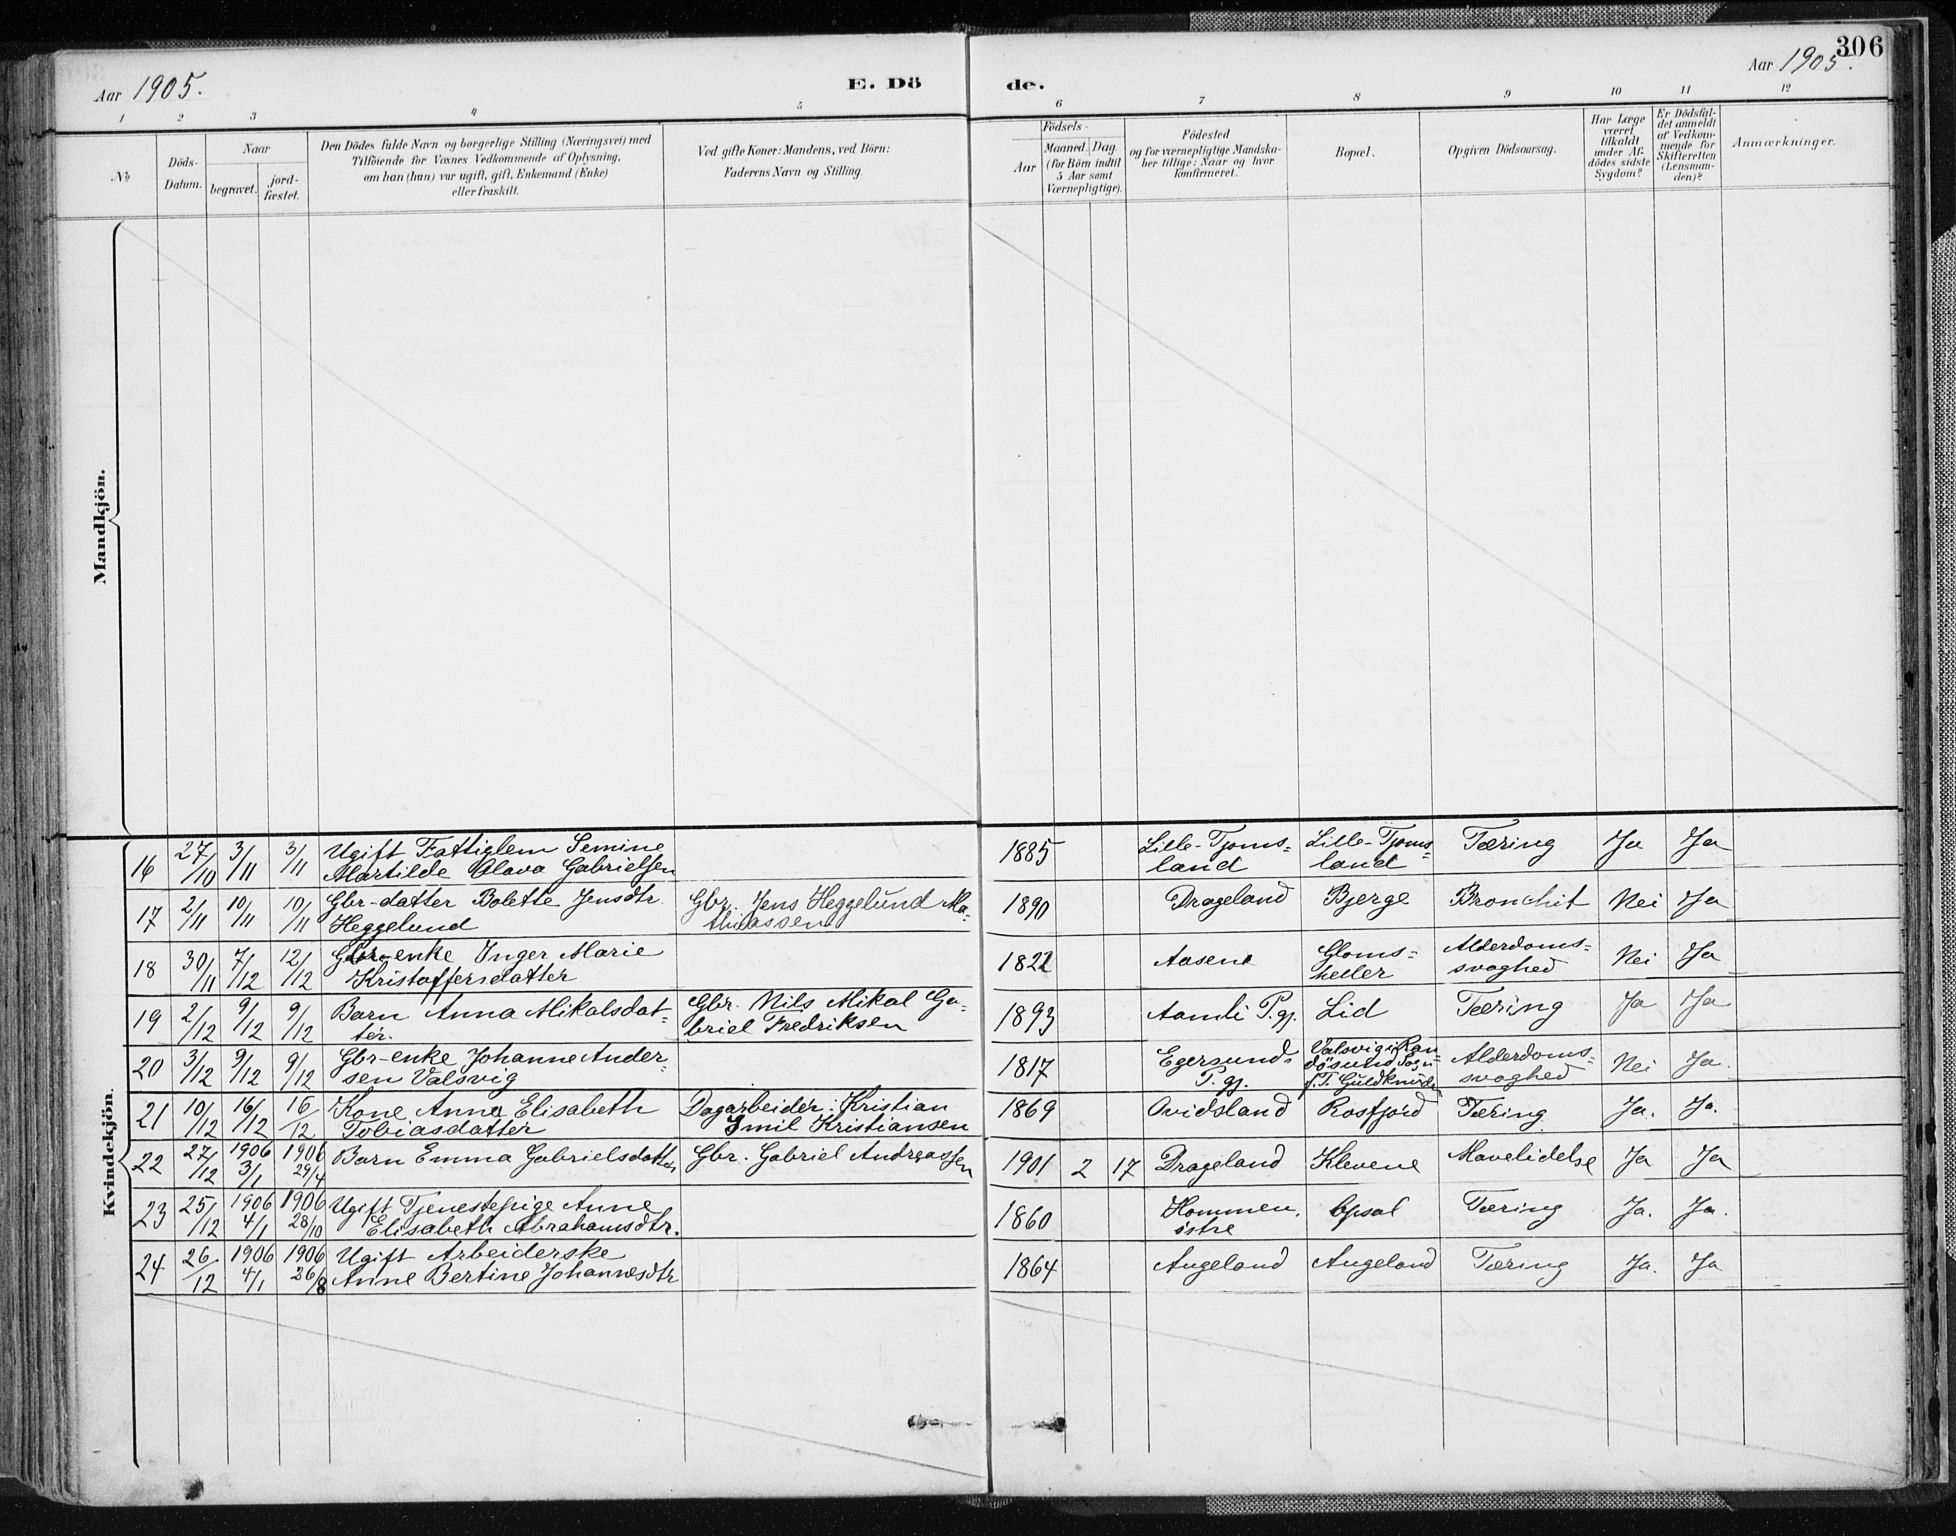 306
Aar 1905.
E. Döde.
Aar 1905.
1 2 3 4 5 6 7 8 9 10 11 12
No
Döds-
Datum.
Naar
begravet.
jord-
fæstet.
Den Dödes fulde Navn og borgerlige Stilling (Næringsvei) med
Tilföiende for Voxnes Vedkommende af Oplysning,
om han (hun) var ugift, gift, Enkemand (Enke)
eller fraskilt.
Ved gifte Koner: Mandens, ved Börn:
Faderens Navn og Stilling.
Födsels-
Aar
Maaned. Dag.
(for Börn indtil
5 Aar samt
Værnepligtige).
Födested
og for værnepligtige Mandska-
ber tillige: Naar og hvor
konfirmeret.
Bopæl.
Opgiven Dödsaarsag.
Har Læge
været
tilkaldt
under Af-
dödes sidste
Sygdom?
Er Dödsfal-
det anmeldt
af Vedkom-
mende for
Skifteretten
(Lensman-
den)?
Anmærkninger.
Mandkjön.
Kvindekjön.
16 27/10 3/11 3/11 Ugift Fattiglem Semine
Martilde Olava Gabrielsen
1885 Lille-Tjoms-
land
Lille-Tjoms-
land
Tæring Ja Ja
17 2/11 10/11 10/11 Gbr-datter Bolette Jensdtr.
Heggelund
Gbr. Jens Heggelund Ma-
thiassen
1890 Drageland Bjerge Bronchit Nei Ja
18 30/11 7/12 12/12 Gbr-enke Inger Marie
Kristoffersdatter
1822 Aasene Gloms-
heller
Alderdoms-
svaghed
Nei Ja
19 2/12 9/12 9/12 Barn Anna Mikalsdat-
ter.
Gbr. Nils Mikal Ga-
briel Fredriksen
1893 Aamli P.gj. Lid Tæring Ja Ja
20 3/12 9/12 9/12 Gbr-enke Johanne Ander-
sen Valsvig
1817 Egersunds
P.gj.
Valsvig i Ran-
dösund Sogn
f. T. Guldknude
Alderdoms-
svaghed
Nei Ja.
21 10/12 16/12 16/12 Kone Anna Elisabeth
Tobiasdatter
Dagarbeider: Kristian
Emil Kristiansen
1869 Ovidsland Rosfjord Tæring Ja. Ja.
22 27/12 1906 3/1 1906 29/4 Barn Emma Gabrielsdatter
Gbr. Gabriel Andreassen
1901 2 17 Drageland Klevene Mavelidelse Ja Ja
23 25/12 1906 4/1 1906 28/10 Ugift Tjenestepige Anne
Elisabeth Abrahamsdtr.
1860 Hommen,
östre
Opsal Tæring Ja. Ja.
24 26/12 1906 4/1 1906 26/8 Ugift Arbeiderske
Anne Bertine Johannesdtr
1864 Augeland Augeland Tæring Ja. Ja